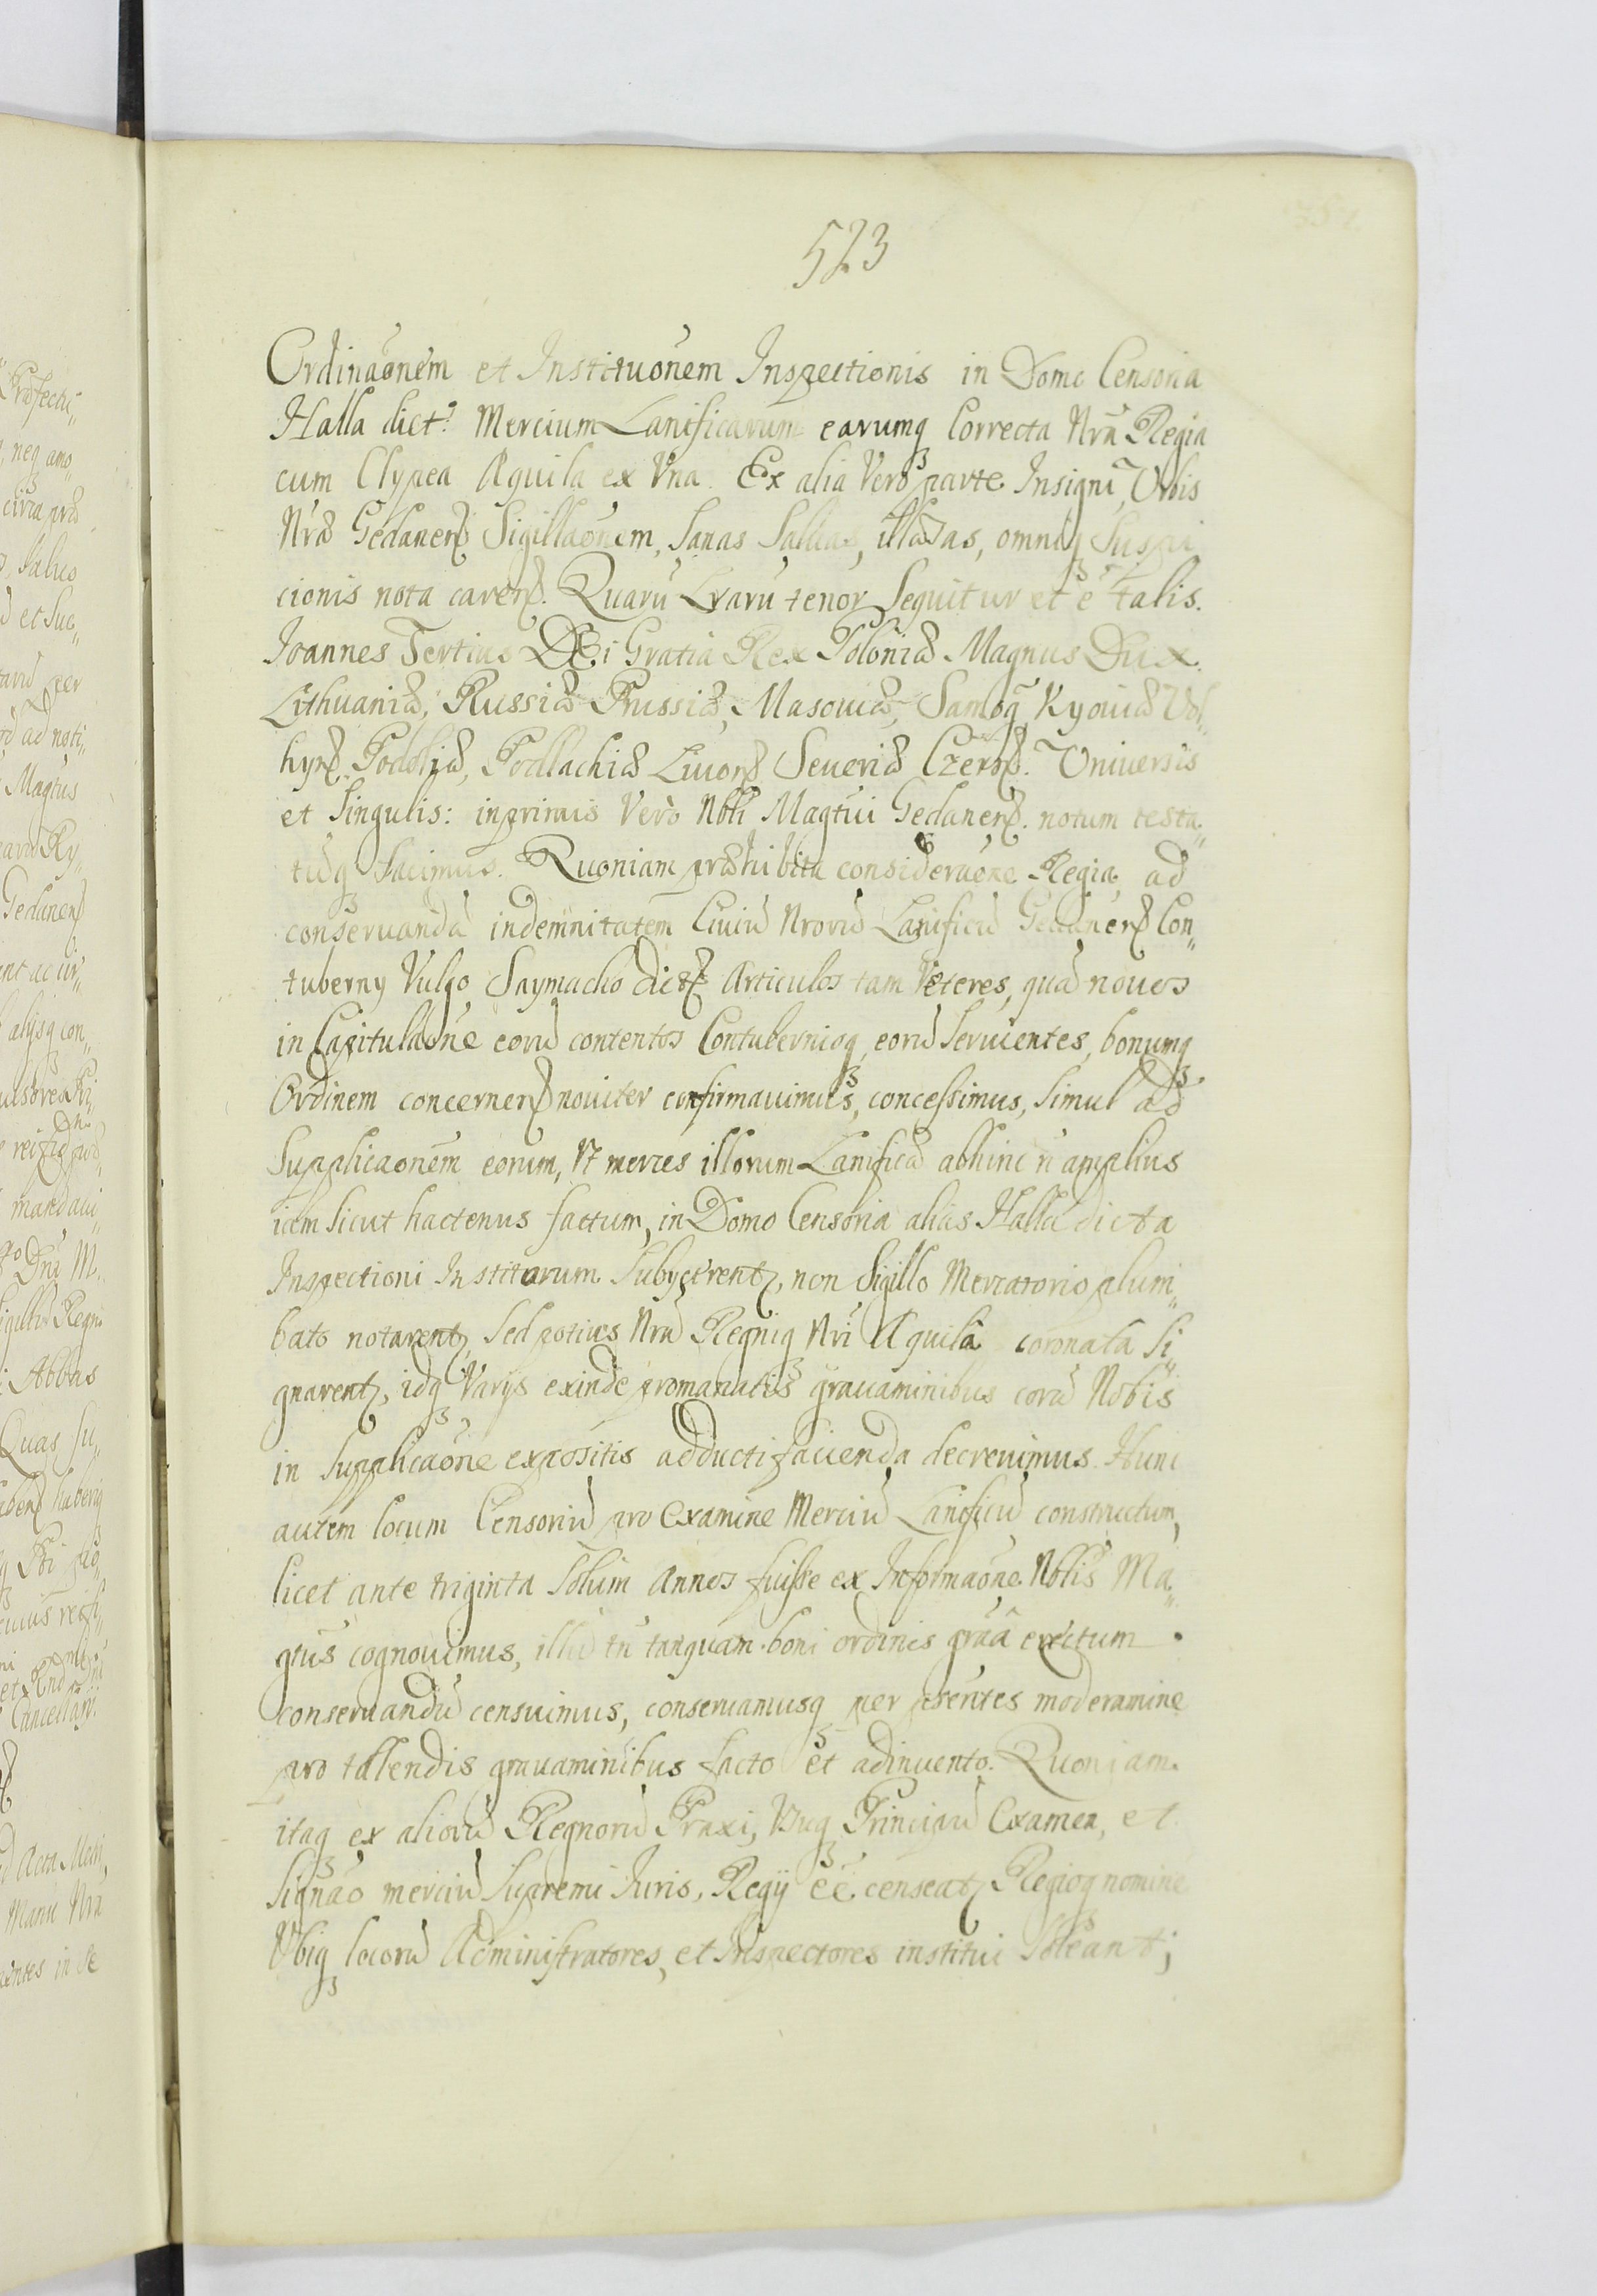 523
Ordinaõnem et Instituõnem Inspectionis in Domo Censoria
Halla dict: Mercium Lanificarum earumq Correcta Nrã Regia
cum Clypea Aquila ex Vna. Ex alia Vero parte Insigni Urbis
Nræ Gedanen Sigillaõnem, Sanas Salvas, illæsas, omniq Suspi
cionis nota caren. Quarũ Lrarũ tenor Sequitur et ẽ talis.
Joannes Tertius DEi Gratia Rex Poloniæ Magnus Dux
Lithuaniæ, Russiæ Prussiæ, Masoviæ, Samog̃ Kyoviæ Vol„
hyn Podoliæ, Podlachiæ Livon Severiæ Czern. Universis
et Singulis: inprimis Verò Nbli Magtui Gedanen. notum testa„
tũq facimus. Quoniam præhibita consideraõne Regia, ad
conservandã indemnitatem Civiũ Nrorũ Lanificũ Gedanen Con„
tuberny Vulgo Saymacho dict Articulos tam Veteres, quã novos
in Capitulaõne eorũ contentos Contubernioq eorũ Servientes, bonumq
Ordinem concernen noviter confirmavimus, concessimus, Simul ad
Supplicaõnem eorum, Vt merces illorum Lanificæ abhinc ñ amplius
iam Sicut hactenus factum, in Domo Censoria alias Halla dicta
Inspectioni Institorum Subycerent, non Sigillo Mercatorio plum„
bato notarent, Sed potius Nrã Regniq Nri Aquilâ coronata Si„
gnarent, idq Varys exinde promanatis gravaminibus corã Nobis
in Supplicaõne expositis adducti facienda decrevimus. Hunc
autem locum Censoriũ pro Examine Merciũ Lanificũ constructum,
licet ante triginta Solum Annos fuisse ex Informaõne Nblis Ma„
gtus cognovimus, illũ tñ tanquam boni ordinis grãâ erectum
conservandũ censuimus, conservamusq per psentes moderamine
pro tollendis gravaminibus facto et adinvento. Quoniam
itaq ex aliorũ Regnorũ Praxi, Vsuq Principũ Examen, et
Signaõ merciũ Supremi Iuris, Regij ẽẽ censeat, Regioq nomine
Vbiq locorũ Administratores, et Inspectores institui Soleant;